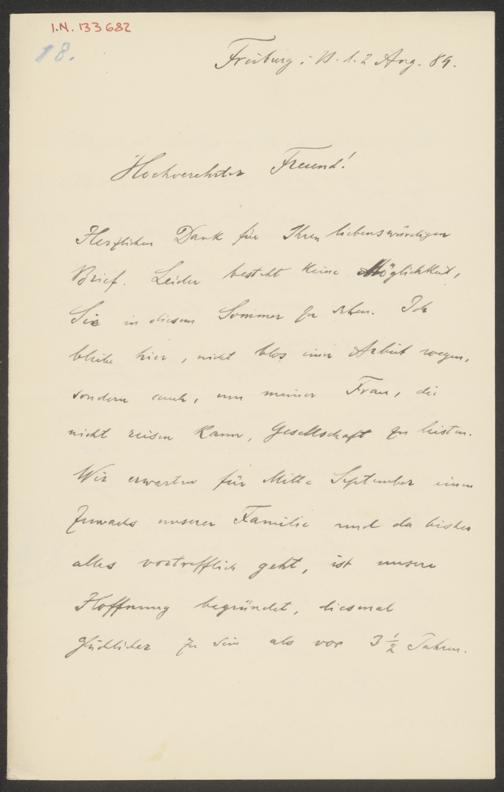 I.N. 133682
18.
Freiburg i. B. d. 2 Aug. 89.
Hochverehrter Freund!
Herzlichen Dank für Ihren liebenswürdigen
Brief. Leider besteht keine Möglichkeit,
Sie in diesem Sommer zu sehen. Ich
bleibe hier, nicht blos einer Arbeit wegen,
sondern auch, um meiner Frau, die
nicht reisen kann, Gesellschaft zu leisten.
Wir erwarten für Mitte September einen
Zuwachs unserer Familie und da bisher
alles vortrefflich geht, ist unsere
Hoffnung begründet, diesmal
glücklicher zu sein als vor 3 1/2 Jahren.